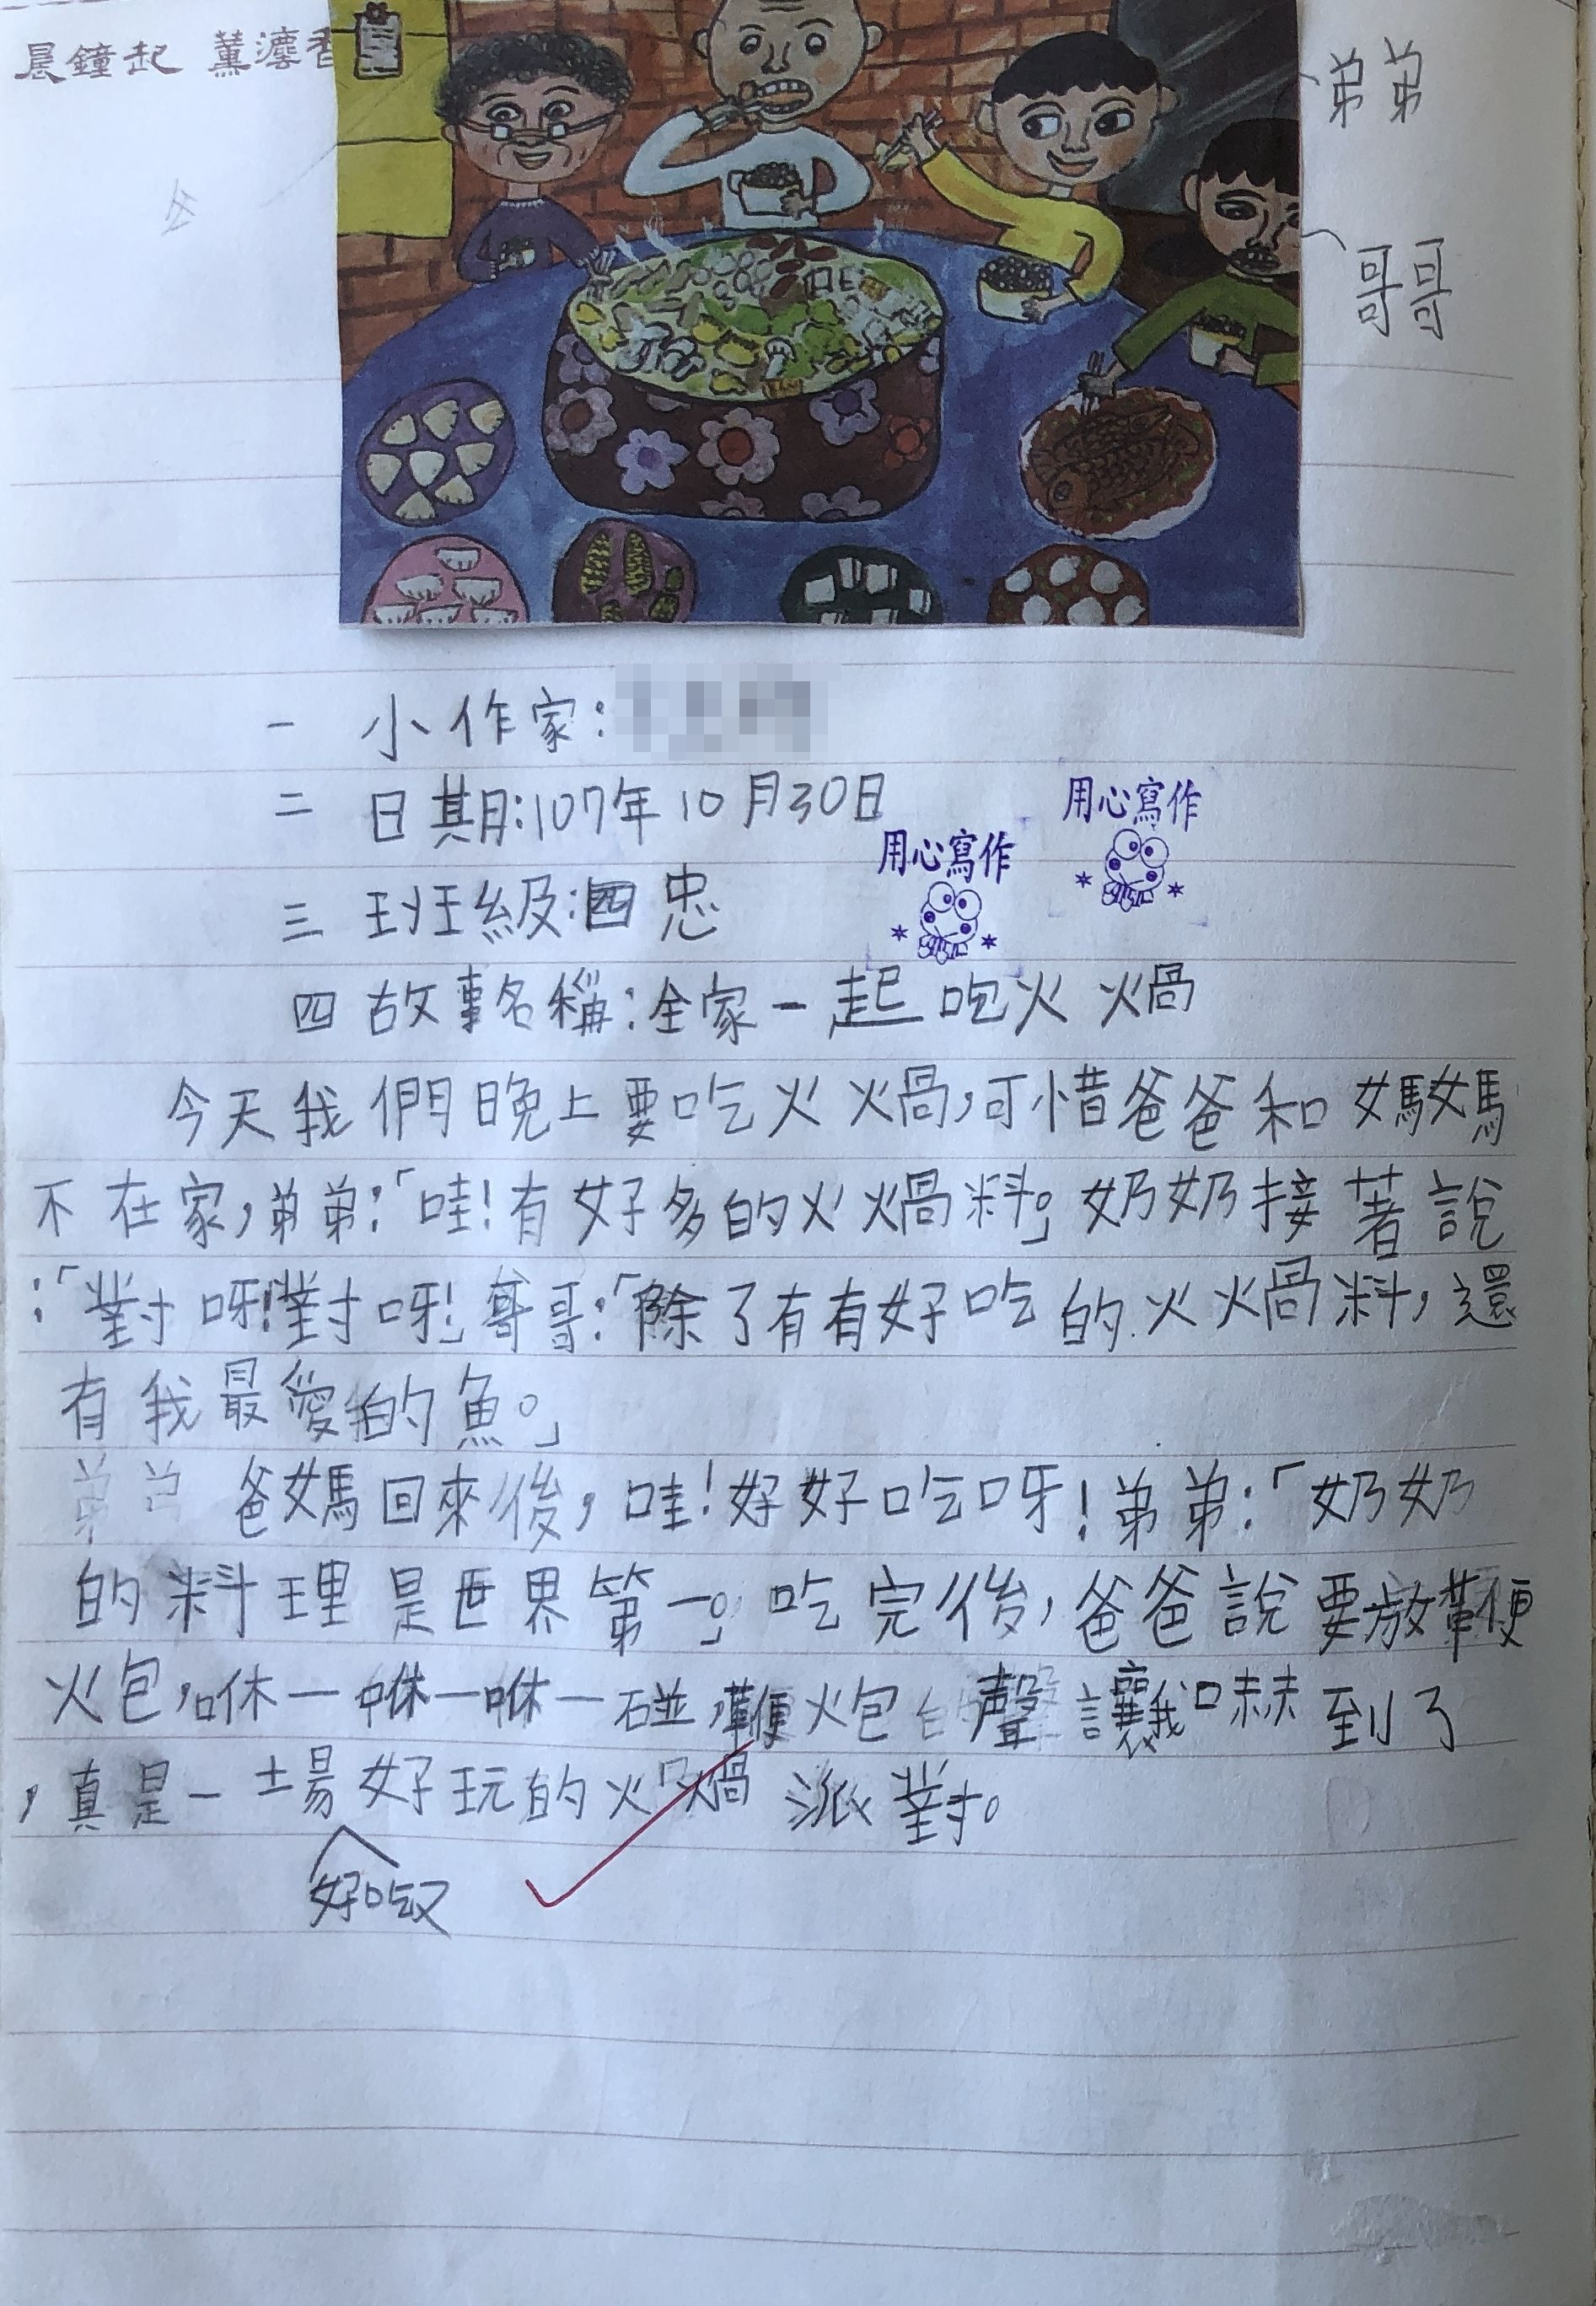 晨鐘起 薰瀍香
弟弟
哥哥
一 小作家:
二 日期:107年10月30日
用心寫作
用心寫作
三 班級:四忠
四 故事名稱:全家一起吃火鍋
今天我們晚上要吃火鍋,可惜爸爸和媽媽
不在家,弟弟:「哇!有好多的火鍋料。」奶奶接著說
:「對呀!對呀!」哥哥:「除了有有好吃的火鍋料,還
有我最愛的魚。」
爸媽回來後,哇!好好吃呀!弟弟:「奶奶
的料理是世界第一。」吃完後,爸爸說要放鞭
炮,咻一咻一咻一碰,鞭炮聲讓我嚇到了
,真是一場好玩的火鍋派對。
好吃又